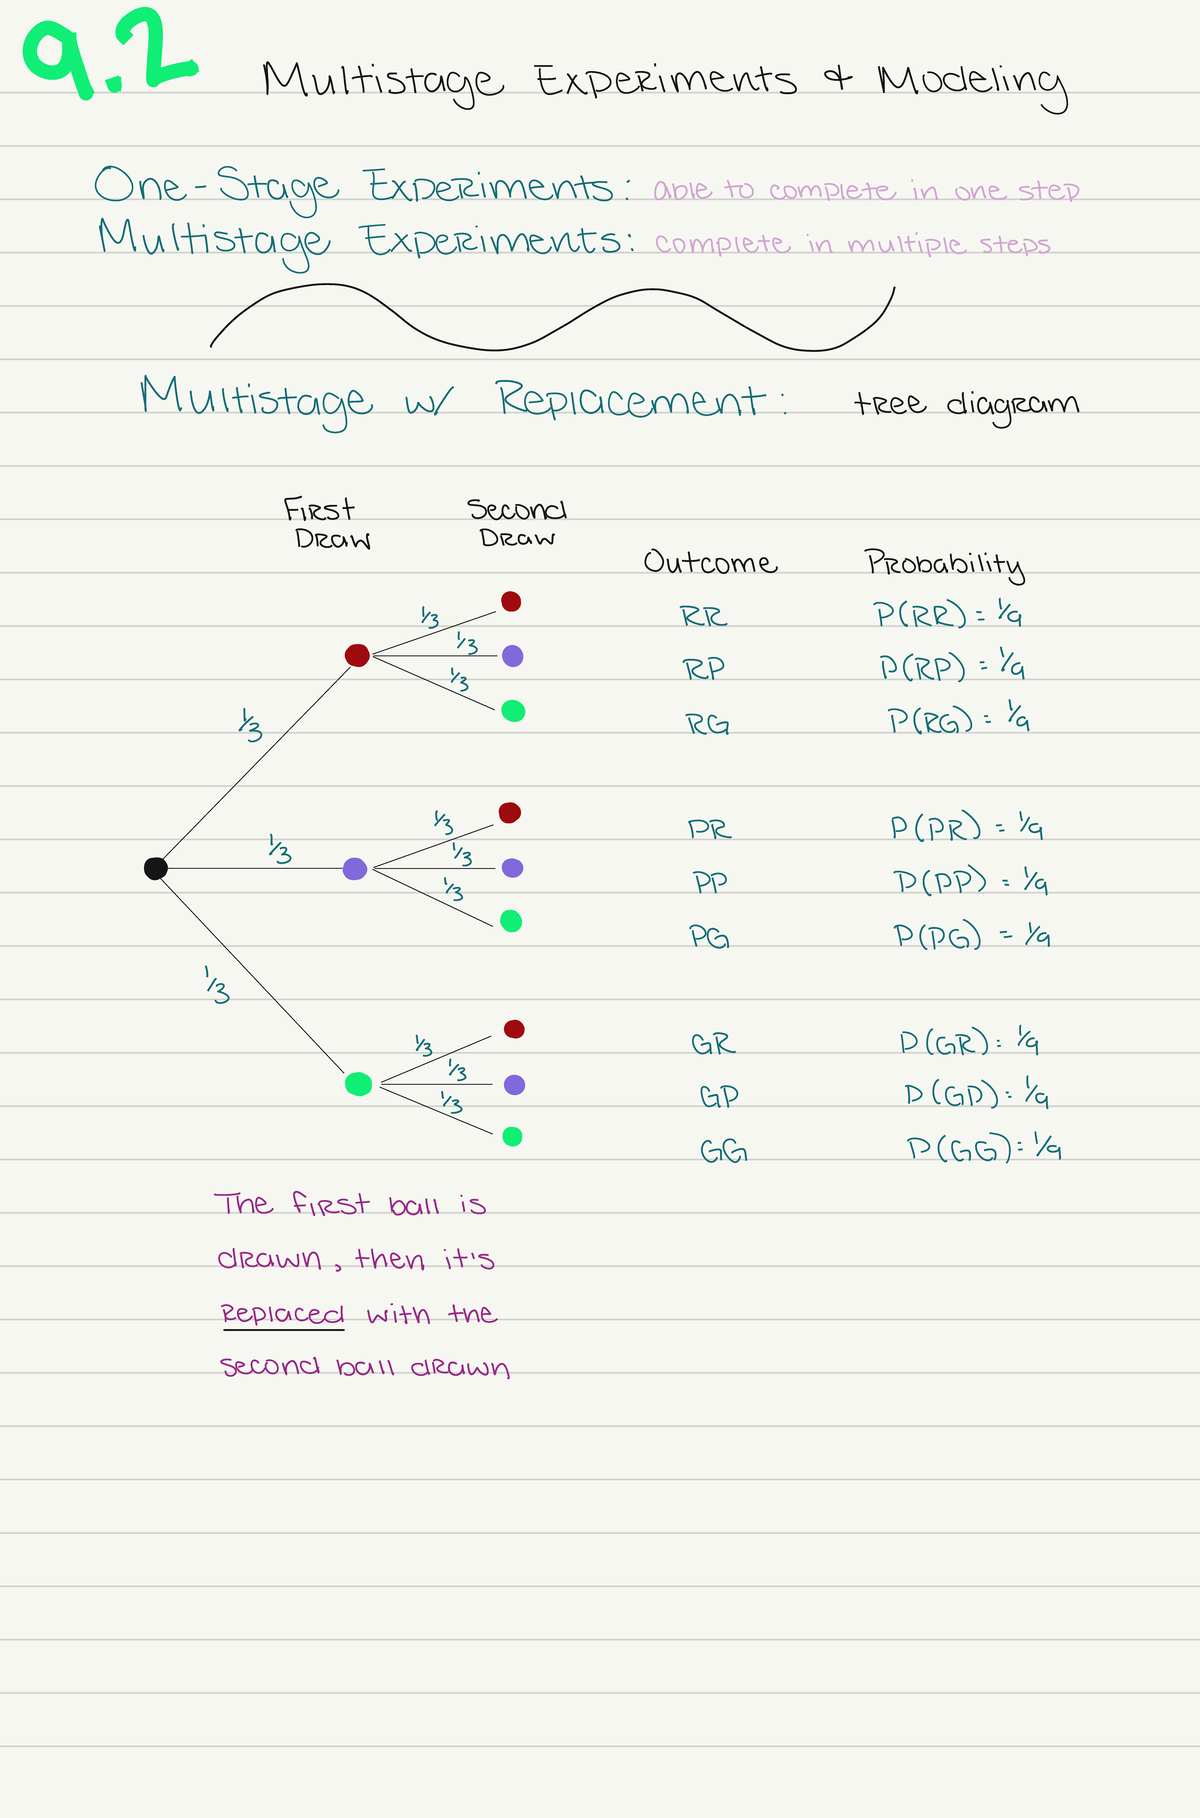 9.2
Multistage Experiments & Modeling
One-Stage Experiments: able to complete in one step
Multistage Experiments: complete in multiple steps
Multistage w/ Replacement: tree diagram
First Draw
Second Draw
Outcome Probability
1/3 RR P(RR) = 1/9
1/3 RP P(RP) = 1/9
1/3 RG P(RG) = 1/9
1/3
1/3 PR P(PR) = 1/9
1/3 1/3 PP P(PP) = 1/9
1/3 PG P(PG) = 1/9
1/3
1/3 GR P(GR) = 1/9
1/3 GP P(GP) = 1/9
1/3 GG P(GG) = 1/9
The first ball is
drawn, then it's
replaced with the
second ball drawn